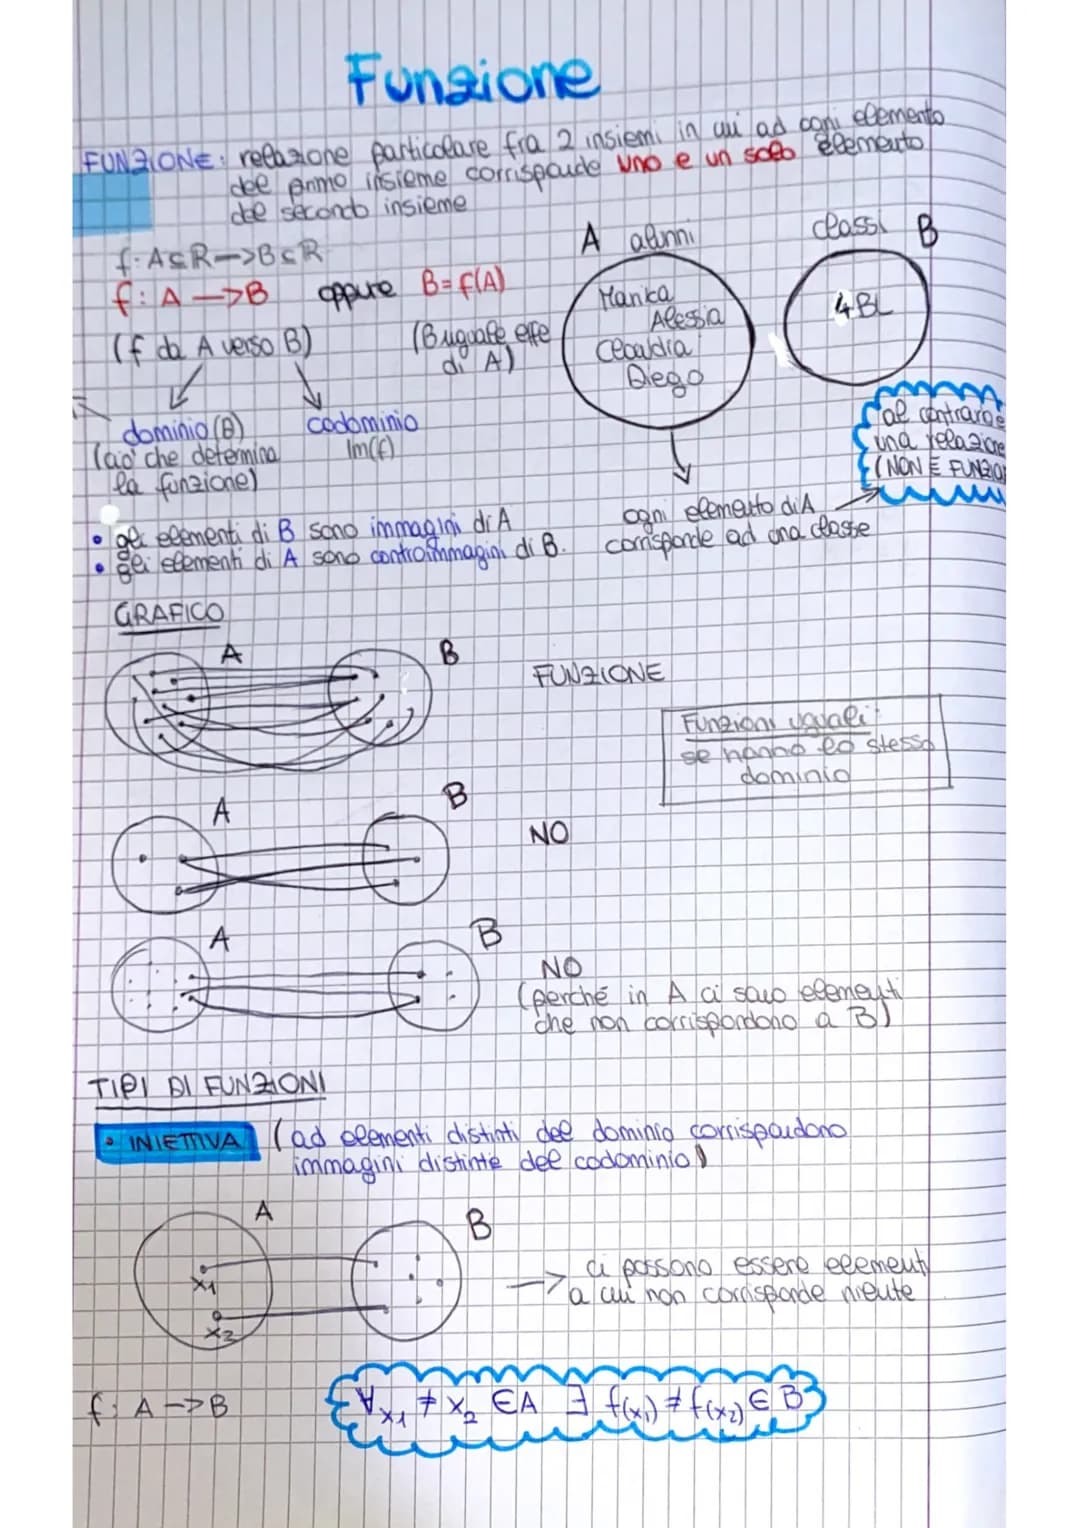 Funzione
FUNZIONE: relazione particolare fra 2 insiemi in cui ad ogni elemento
del primo insieme corrisponde uno e un solo elemento
del secondo insieme
f: A⊆R->B⊆R
f: A —>B oppure B=f(A)
(f da A verso B) (B uguale effe
di A)
dominio (D) codominio
(cio' che determina Im(f)
la funzione)
A alunni classi B
Marika
Alessia
Claudia
Diego
4BL
al contrario è
una relazione
(NON È FUNZIO
ogni elemento di A
corrisponde ad una classe
• gli elementi di B sono immagini di A
• gli elementi di A sono controimmagini di B.
GRAFICO
A B
FUNZIONE
Funzioni uguali:
se hanno lo stesso
dominio
A B
NO
A B
NO
(perché in A ci sono elementi
che non corrispondono a B)
TIPI DI FUNZIONI
• INIETTIVA (ad elementi distinti del dominio corrispondono
immagini distinte del codominio)
A B
x1
x2
—> ci possono essere elementi
a cui non corrisponde niente
f: A —>B ∀x1 ≠ x2 ∈A ∃ f(x1) ≠ f(x2) ∈ B